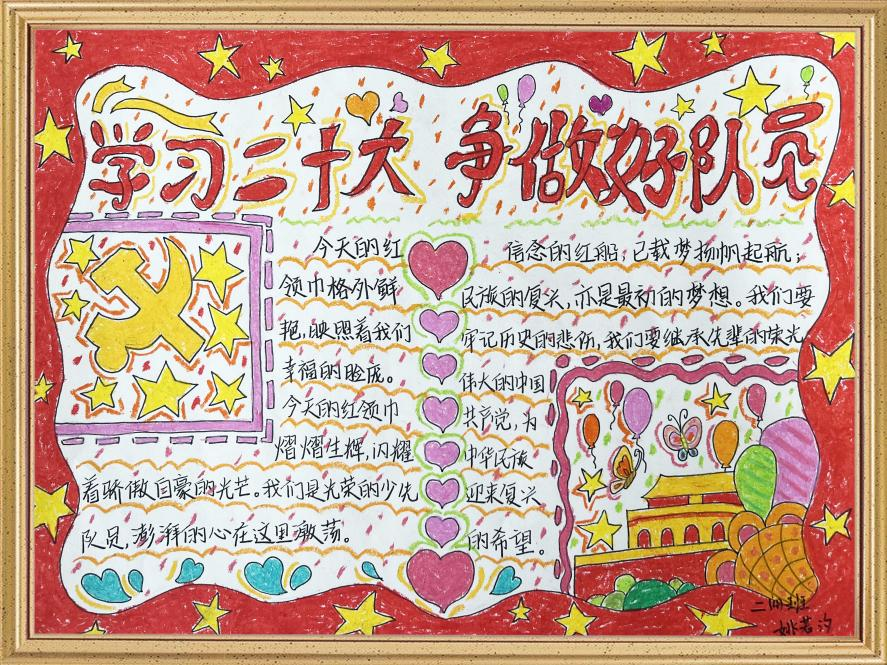 学习二十大 争做好队员
今天的红
领巾格外鲜
艳,映照着我们
幸福的脸庞。
今天的红领巾
熠熠生辉,闪耀
着骄傲自豪的光芒。我们是光荣的少先
队员,澎湃的心在这里激荡。
信念的红船,已载梦扬帆起航;
民族的复兴,亦是最初的梦想。我们要
牢记历史的悲伤,我们要继承先辈的荣光
伟大的中国
共产党,为
中华民族
迎来复兴
的希望。
二四班
姚若汐